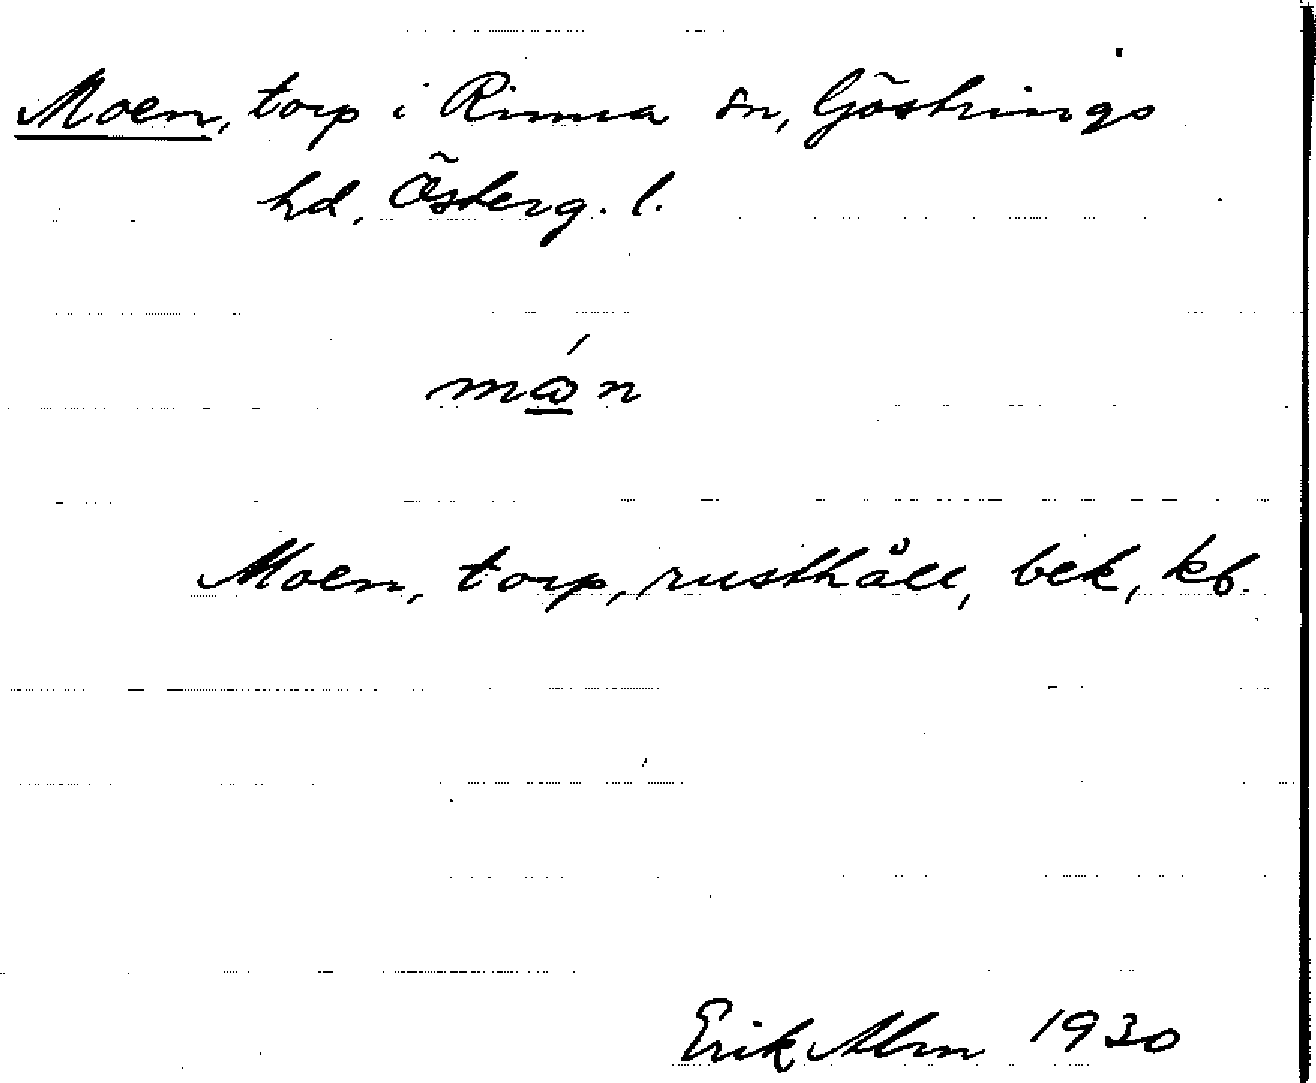 Moen, torp i Rinna sn, Göstrings
hd, Österg. l.
Moen, torp, rusthåll, bek, kb.
Erik Alm 1930